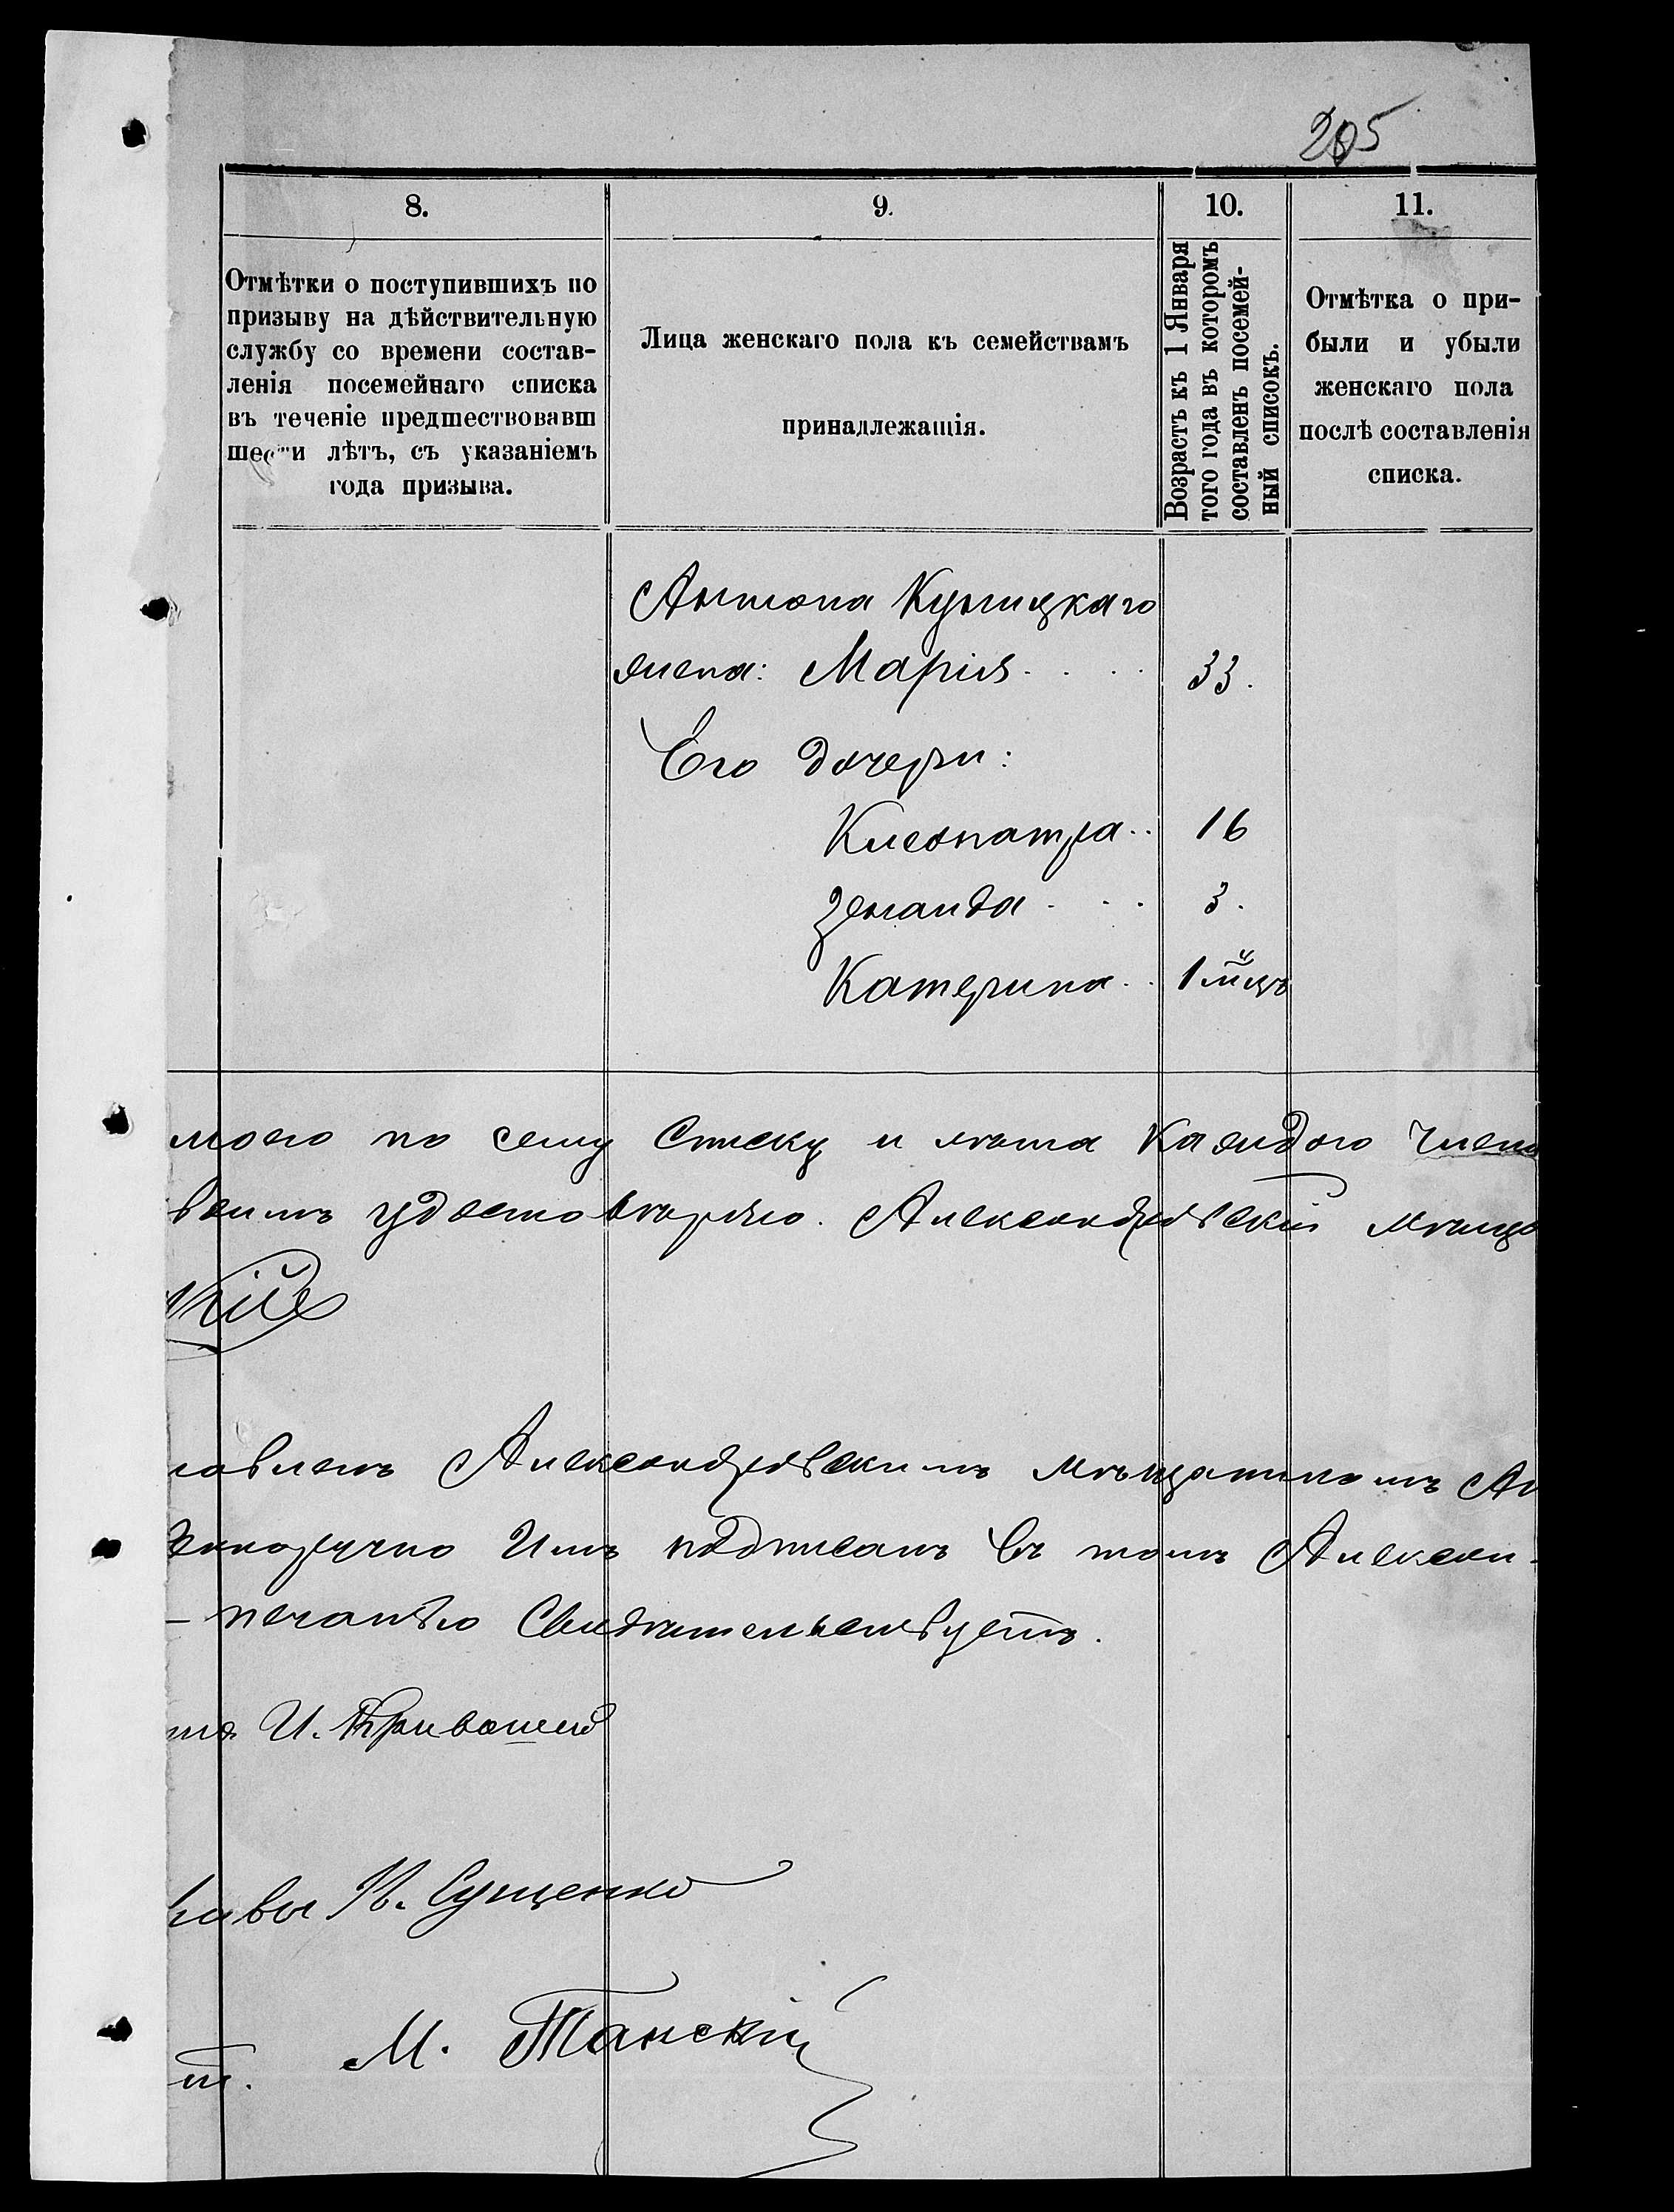 205
8.
9.
10.
11.
Отмѣтки о поступившихъ по
призыву на дѣйствительную
службу со времени состав-
ленія посемейнаго списка
въ теченіе предшествовавш
шести лѣтъ, съ указаніемъ
года призыва.
Лица женскаго пола къ семействамъ
принадлежащія.
Возрастъ къ 1 Января
того года въ которомъ
составленъ посемей-
ный списокъ.
Отмѣтка о при-
были и убыли
женскаго пола
послѣ составленія
списка.
Антона
жена: Марія 33.
Его дочери:
Клеопатра 16
3.
Катерина 1 м-цъ
моего по сему списку и лѣта каждого члена
удостовѣряю. Александровскій мѣщ
Александровскимъ мѣщаниномъ Ан
имъ подписанъ въ томъ Алексан-
- печатью свидѣтельствуетъ.
И.
Сущенко
М. Танскій